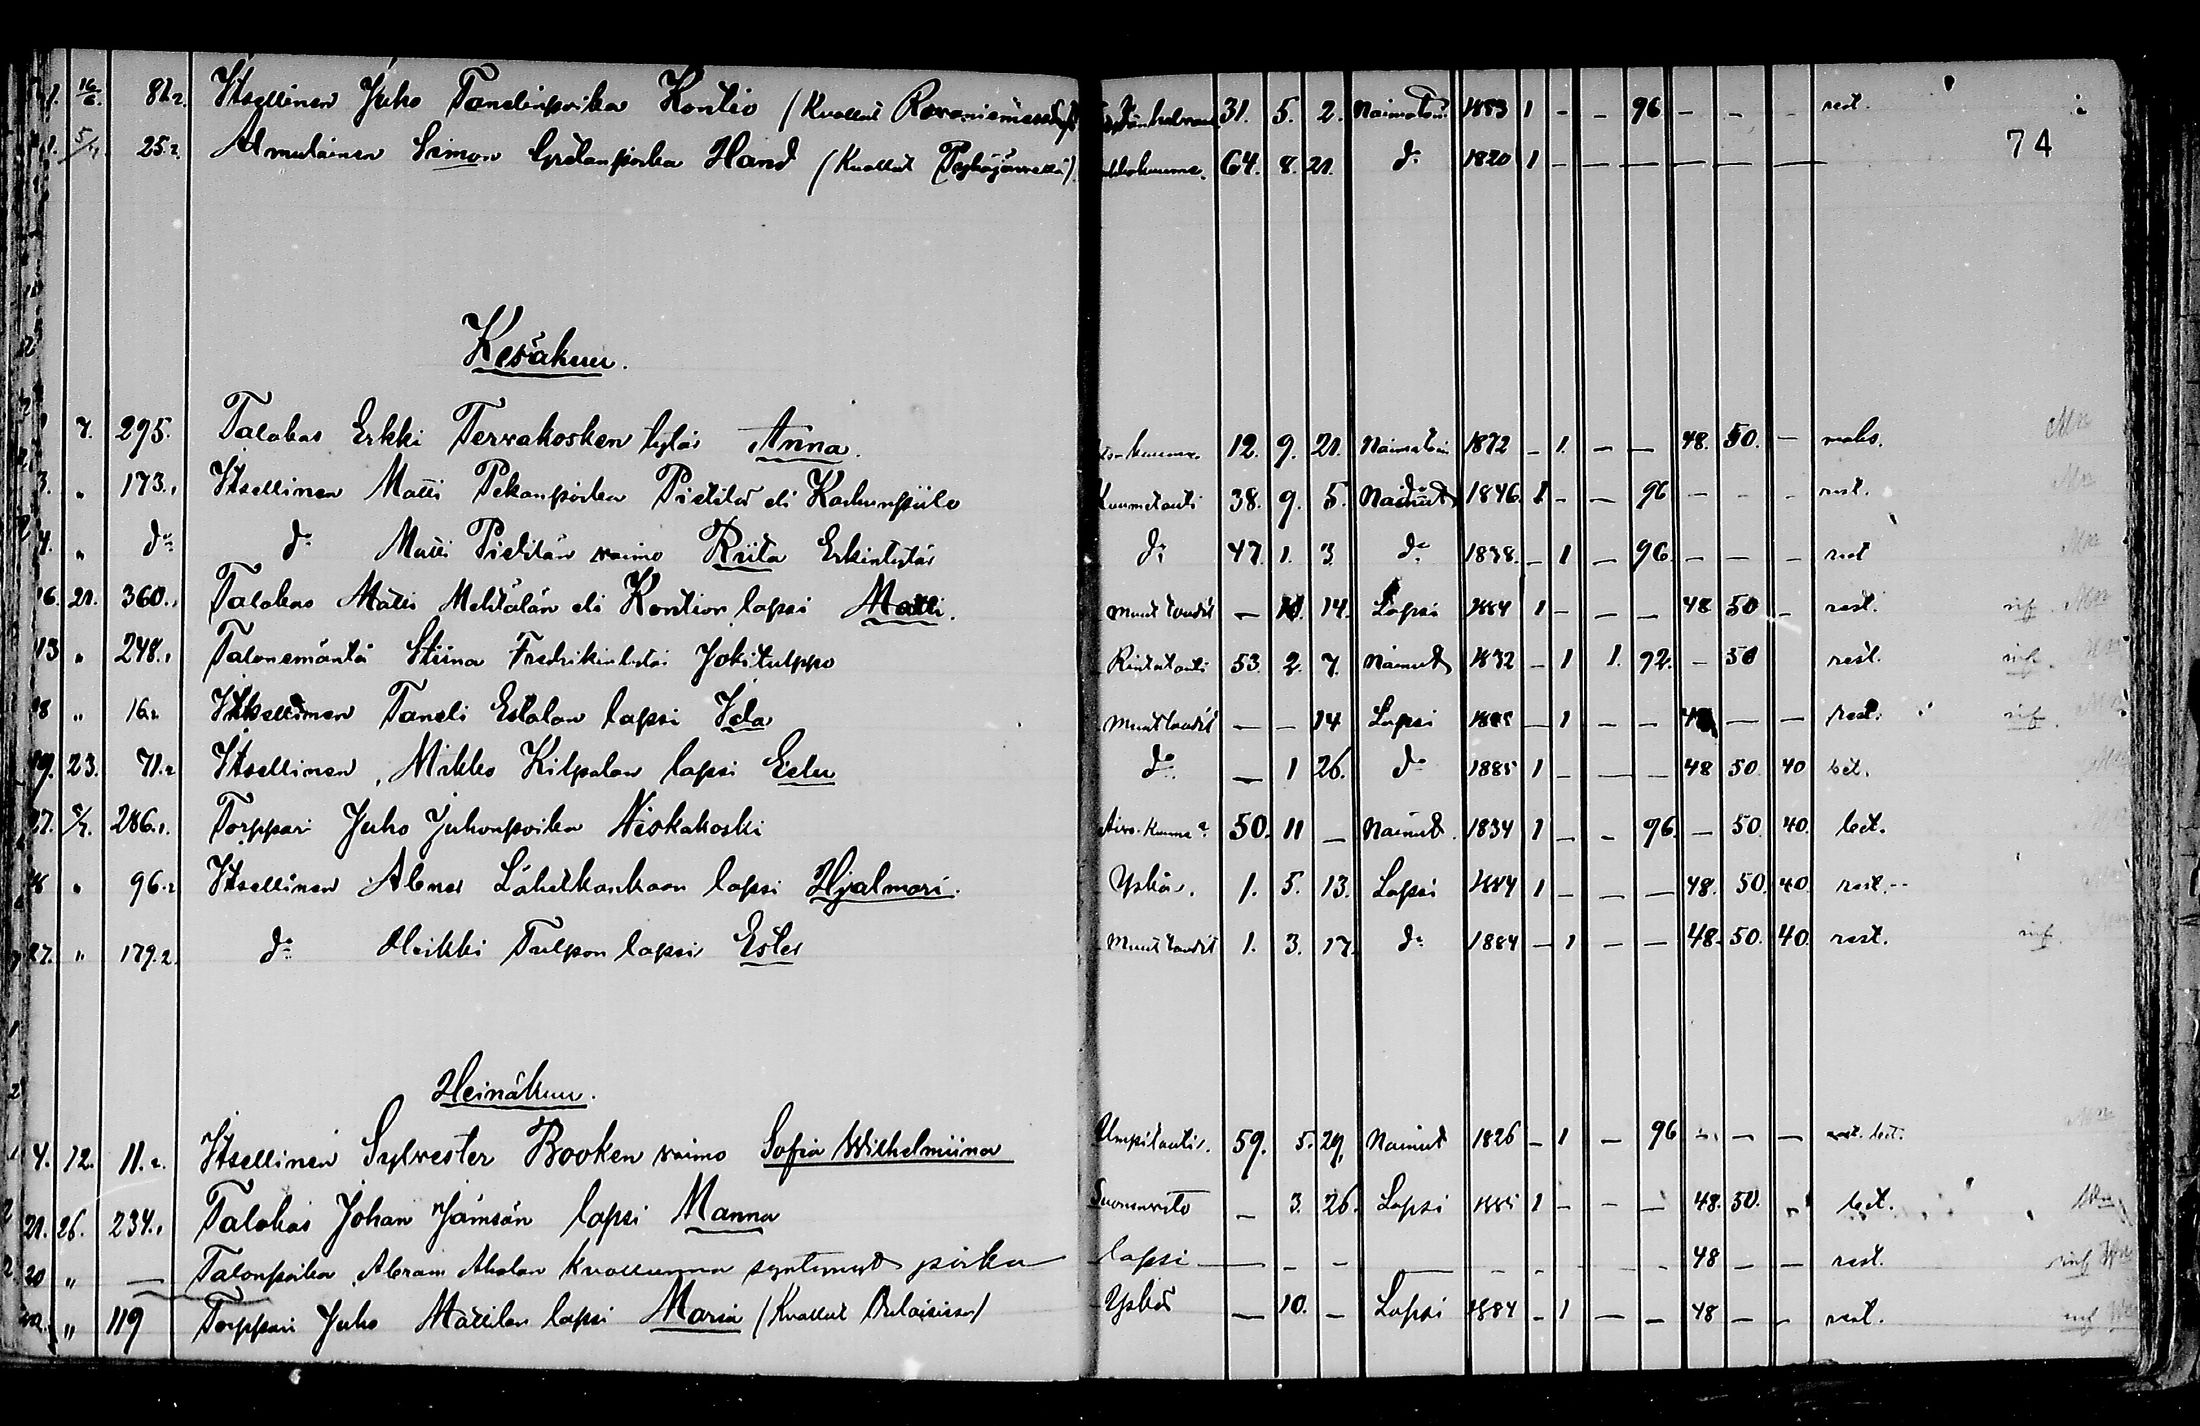 16/6. 81.2. Itsellinen Juho Tanelinpoika Kontio (Kuollut Rovaniemessä) 31. 5. 2. Naimatoin 1853 1 - - 96 - - - rest.
74
5/7 25.2. Simon Gretanpoika Hand (Kuollut Pyhäjärvellä) 64. 8. 21. do 1820 1 - - - - - -
Kesäkuu.
7. 295. Talokas Erkki Tervakosken tytär Anna. 12. 9. 21. Naimatoin 1872 - 1. - - 48. 50. - maks.
3. " 173.1 Itsellinen Matti Pekanpoika Pietilä eli Karhunpiile Kuumetauti 38. 9. 5. Nainut 1846. 1 - - 96 - - - rest.
4. " do do Matti Pietilän vaimo Riita Erkintytär do 47. 1. 3 do 1838. - 1 - 96. - - - rest
16. 21. 360.1 Talokas Matti Mehtälän eli Kontion lapsi Matti. Muut taudit - 14. Lapsi 1884 1 - - - 48 50 - rest.
13 " 248.1 Talonemäntä Stiina Fredrikintytär Jokitulppo Rintatauti 53. 2. 7. Nainut 1832 - 1 1. 92. - 50 rest.
18 " 16.2 Itsellinen Taneli Eskolan lapsi Ida Muut taudit - - 14 Lapsi 1885 - 1 - - 48 - - rest.
19. 23. 71.2 Itsellinen Mikko Kilpalan lapsi do - 1 26. do 1885 1 - - - 48 50. 40 bet.
27. 5/7. 286.1. Torppari Juho Juhonpoika Niskakoski Aivo-kuume 50. 11 - Nainut 1834 1 - - 96. - 50. 40. bet.
" 96.2 Itsellinen Abner Lähetkankaan lapsi Hjalmari. Yskä. 1. 5. 13. Lapsi 1884 1 - - - 48. 50. 40. rest.
27. " 179.2. do Heikki Tulpon lapsi Ester Muut taudit 1. 3. 17. do 1884 - 1 - - 48. 50. 40. rest.
Heinäkuu.
4. 12. 11.2. Itsellinen Sylvester Booken vaimo Sofia Wilhelmiina Umpitauti. 59. 5. 29. Nainut 1826 - 1 - 96 - - - bet.
21. 26. 234.1 Talokas Johan Jämsän lapsi Manna Suonenveto - 3. 26. Lapsi 1885 1 - - - 48. 50. - bet.
20 " - Talonpoika Abram Aholan kuolleena syntynyt poika lapsi - - - - 48 - - rest.
" 119 Torppari Juho Mattilan lapsi Maria (Kuollut Yskä - 10. - Lapsi 1884 - 1 - - 48 - - rest.